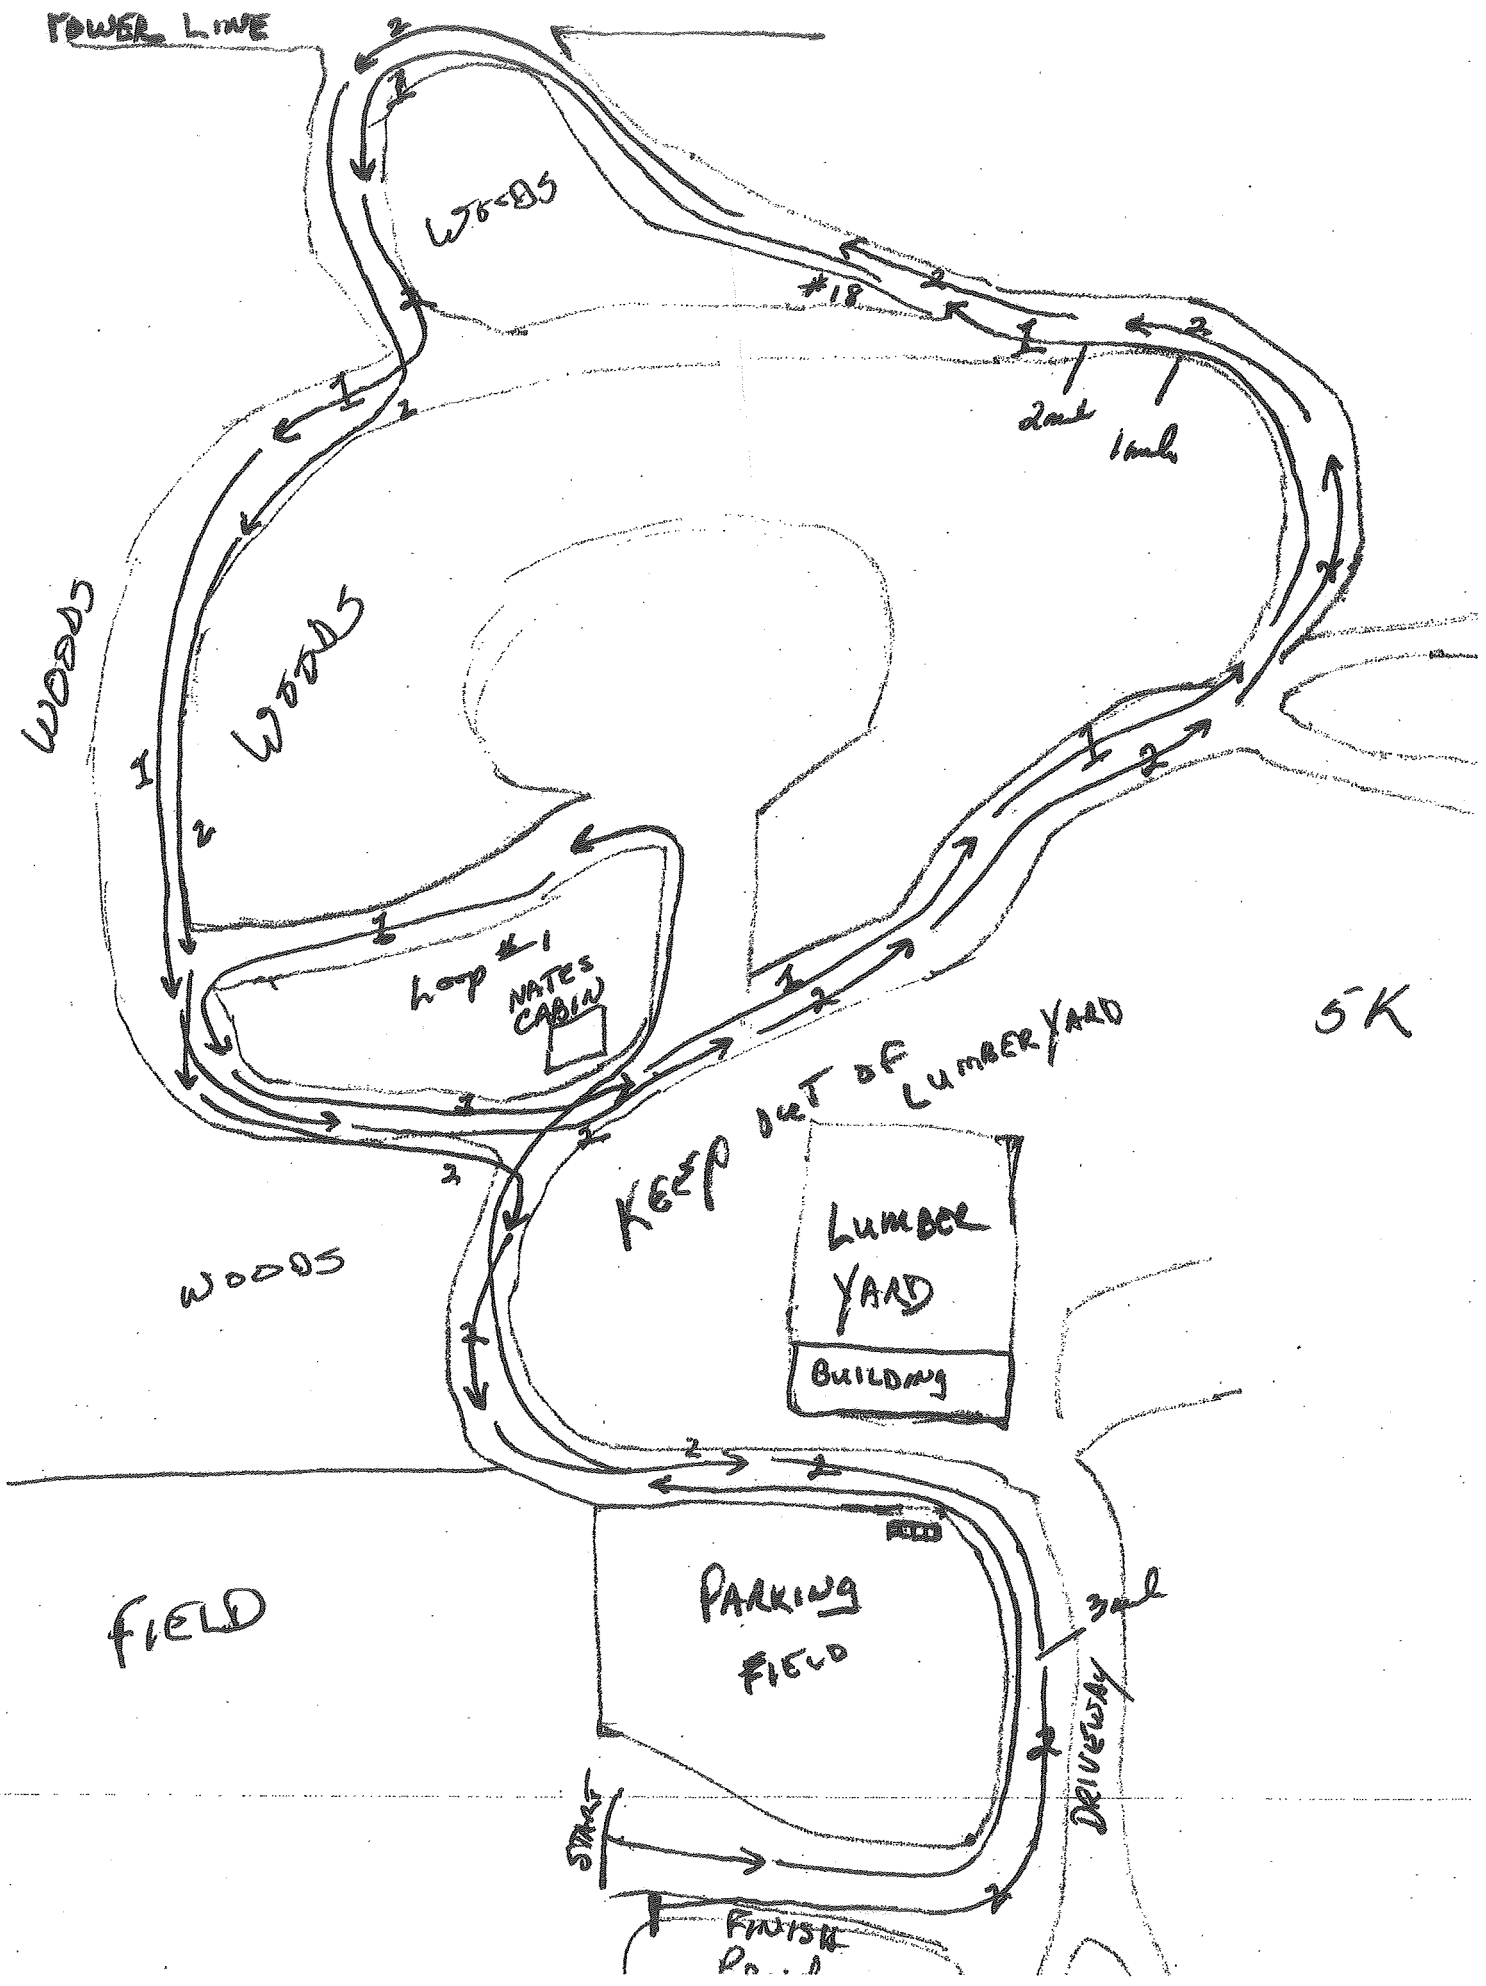 POWER LINE
2
1
WOODS
#18
2
2
1
2
1
2
2 mile
1 mile
2
WOODS
WOODS
1
2
1
2
1
Loop #1
NATES
CABIN
1
2
5K
KEEP OUT OF
LUMBER YARD
1
2
2
LUMBER
YARD
BUILDING
WOODS
2
2
2
FIELD
PARKING
FIELD
3 mile
2
DRIVEWAY
START
2
FINISH